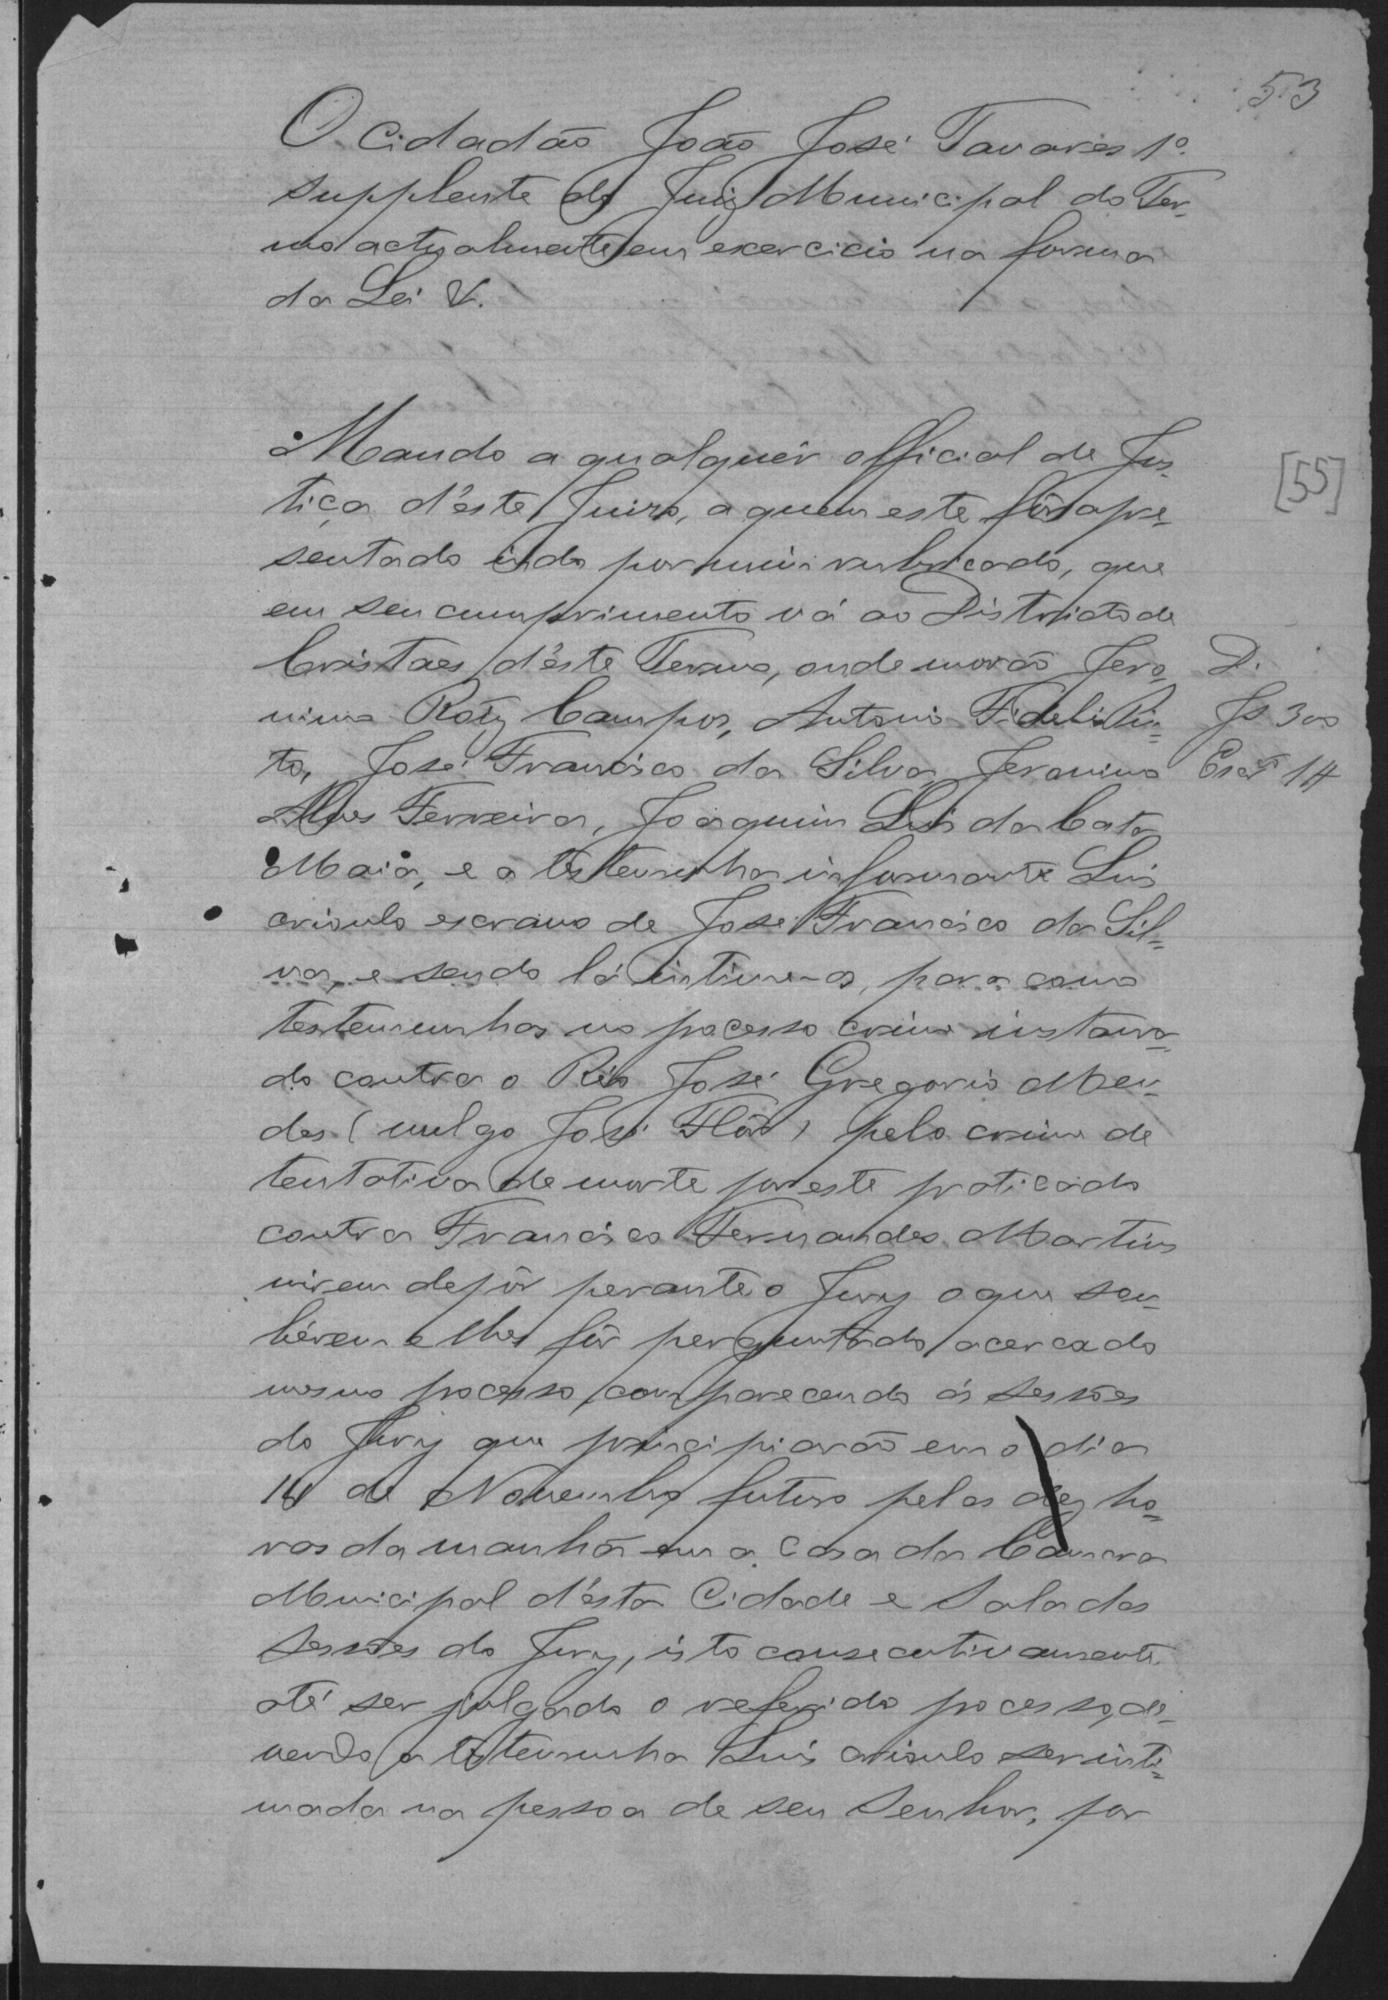 53
O Cidadão João José Tavares 1º
supplente do Juiz Municipal do Ter-
mo actualmente em exercicio na forma
da Lei &.
Mando a qualquér official de Jus-
tiça d'éste Juizo, a quem este fôr apre-
sentado indo por mim rubricado, que
em seu cumprimento vá ao Districto de
Cristaes, d'éste Termo, onde morão Jero-
nimo Roiz Campos, Antonio Fideli Pin-
to, José Francisco da Silva, Jeronimo
Alves Ferreira, Joaquim Luis da Cota
Maia, e a testemunha informante Luis
crioulo escravo de José Francisco da Sil-
va, e sendo lá intime-os, para como
testemunhas no processo crime instaura-
do contra o Réo José Gregorio Men-
des (vulgo José Flôr) pelo crime de
tentativa de morte por este praticado
contra Francisco Fernandes Martins
virem depôr perante o Jury o que sou-
bérem e lhes fôr perguntado acerca do
mesmo processo, comparecendo ás sessões
do Jury que principiarão em o dia
14 de Novembro futuro pelas dez ho-
ras da manhã em a Casa da Camara
Municipal d'ésta Cidade e Sala das
Sessões do Jury, isto consecutivamente
até ser julgado o referido processo, de-
vendo a testemunha Luis crioulo ser inti-
mada na pessoa de seu Senhor, por
[55]
D.
Js 300